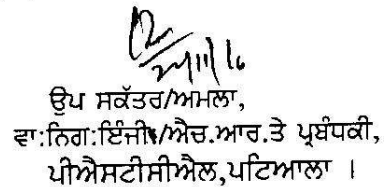 ਉਪ ਸਕੱਤਰ/ਅਮਲਾ,
ਵਾ:ਨਿਗ:ਇੰਜੀ/ਐਚ.ਆਰ.ਤੇ ਪ੍ਰਬੰਧਕੀ,
ਪੀਐਸਟੀਸੀਐਲ,ਪਟਿਆਲਾ ।